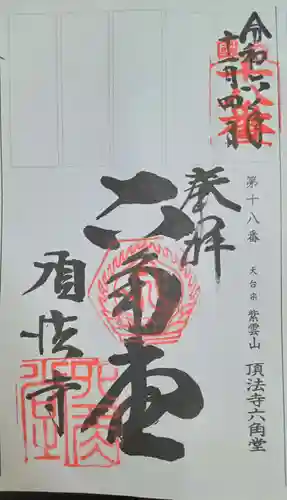 令和六年
十一月四日
奉拝
第十八番 天台宗 紫雲山 頂法寺六角堂
六角堂
頂法寺